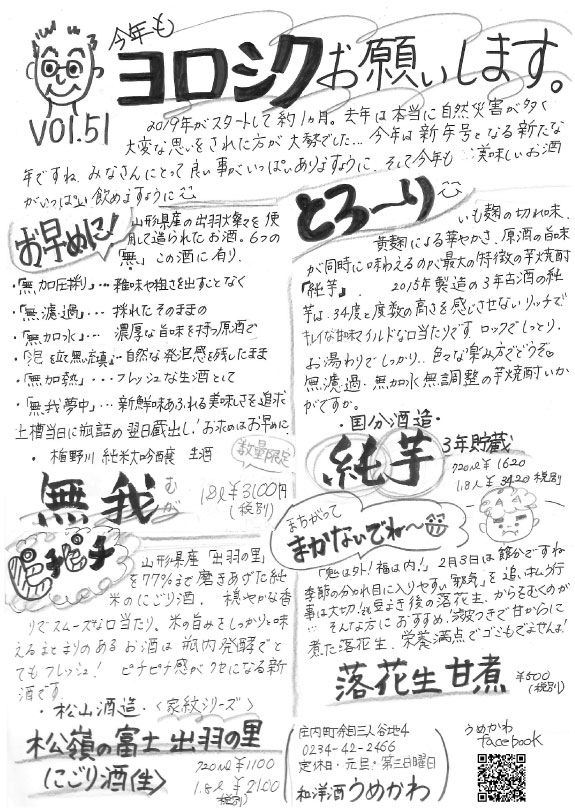 今年も
ヨロシクお願いします。
VOl.51
2019年がスタートして約1ヵ月。去年は本当に自然災害が多く
大変な思いをされた方が大勢でした…今年は新年号となる新たな
年ですね、みなさんにとって良い事がいっぱいありますように、そして今年も 美味しいお酒
がいっぱい飲めますように
お早めに!
山形県産の出羽燦々を使
用して造られたお酒。6つの
「無」この酒に有り。
・「無加圧搾り」…雑味や粗さを出すことなく
・「無濾過」…採れたそのままの
・「無加水」…濃厚な旨味を持つ原酒で
自然な発泡感を残したまま
・「無加熱」…フレッシュな生酒として
・「無我夢中」…新鮮味あふれる美味しさを追求
上槽当日に瓶詰め翌日蔵出し!お求めはお早めに
・楯野川 純米大吟醸 生酒
数量限定
無我
むが
1.8l ¥3100円
(税別)
ピチピチ
山形県産「出羽の里」
を77%まで磨きあげた純
米のにごり酒。 穏やかな香
りでスムーズな口当たり。米の旨みをしっかりと味
えるまとまりのあるお酒は瓶内発酵でと
てもフレッシュ! ピチピチ感がクセになる新
酒です。
・松山酒造・〈家紋シリーズ〉
松嶺の富士 出羽の里
(にごり酒(生))
720ml ¥1100
1.8l ¥2100
(税別)
とろ〜り
いも麹の切れ味、
黄麹による華やかさ、原酒の旨味
が同時に味わえるのが最大の特徴の芋焼酎
『純芋』。 2015年製造の3年古酒の純
芋は、34度と度数の高さを感じさせないリッチで
キレイな甘味マイルドな口当たりです。ロックでしっとり、
お湯わりでしっかり…色々な楽み方でどうぞ。
無濾過・無加水無調整の芋焼酎いか
がですか。
・国分酒造・
純芋
3年貯蔵
720ml ¥1620
1.8l ¥3420 税別
まちがって
まかないでね〜
「鬼は外!福は内!」2月3日は節分ですね
季節の分かれ目に入りやすい“邪気”を追い払う行
事は大切!
…そんな方におすすめ!渋皮つきで甘からに
煮た落花生。栄養満点でゴミもでませんよ!
落花生甘煮
¥500
(税別)
庄内町余目三人谷地4
0234-42-2466
定休日・元旦・第三日曜日
和洋酒うめかわ
うめかわ
facebook